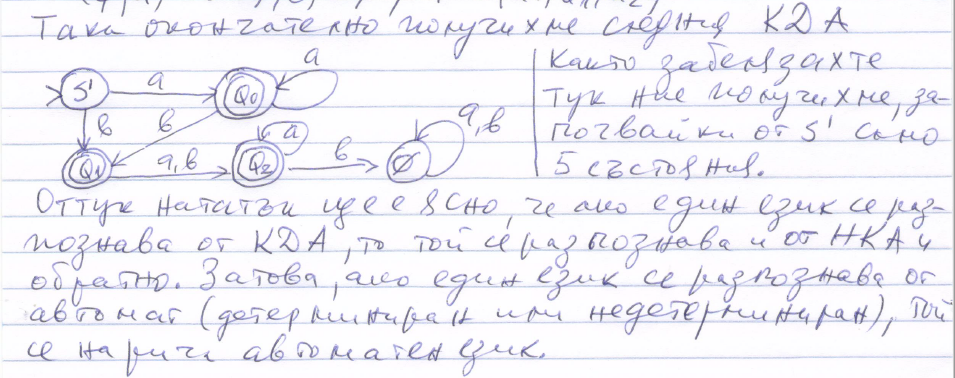 Така окончателно получихме следния КДА
S' a Q0 a
в в
Q1 a,в Q2 a в Ø a,в
Както забелязахте
тук ние получихме, за-
почвайки от S' само
5 състояния.
Оттук нататък ще е ясно, че ако един език се раз-
познава от КДА, то той се разпознава и от НКА и
обратно. Затова, ако един език се разпознава от
автомат (детерминиран или недетерминиран), той
се нарича автоматен език.